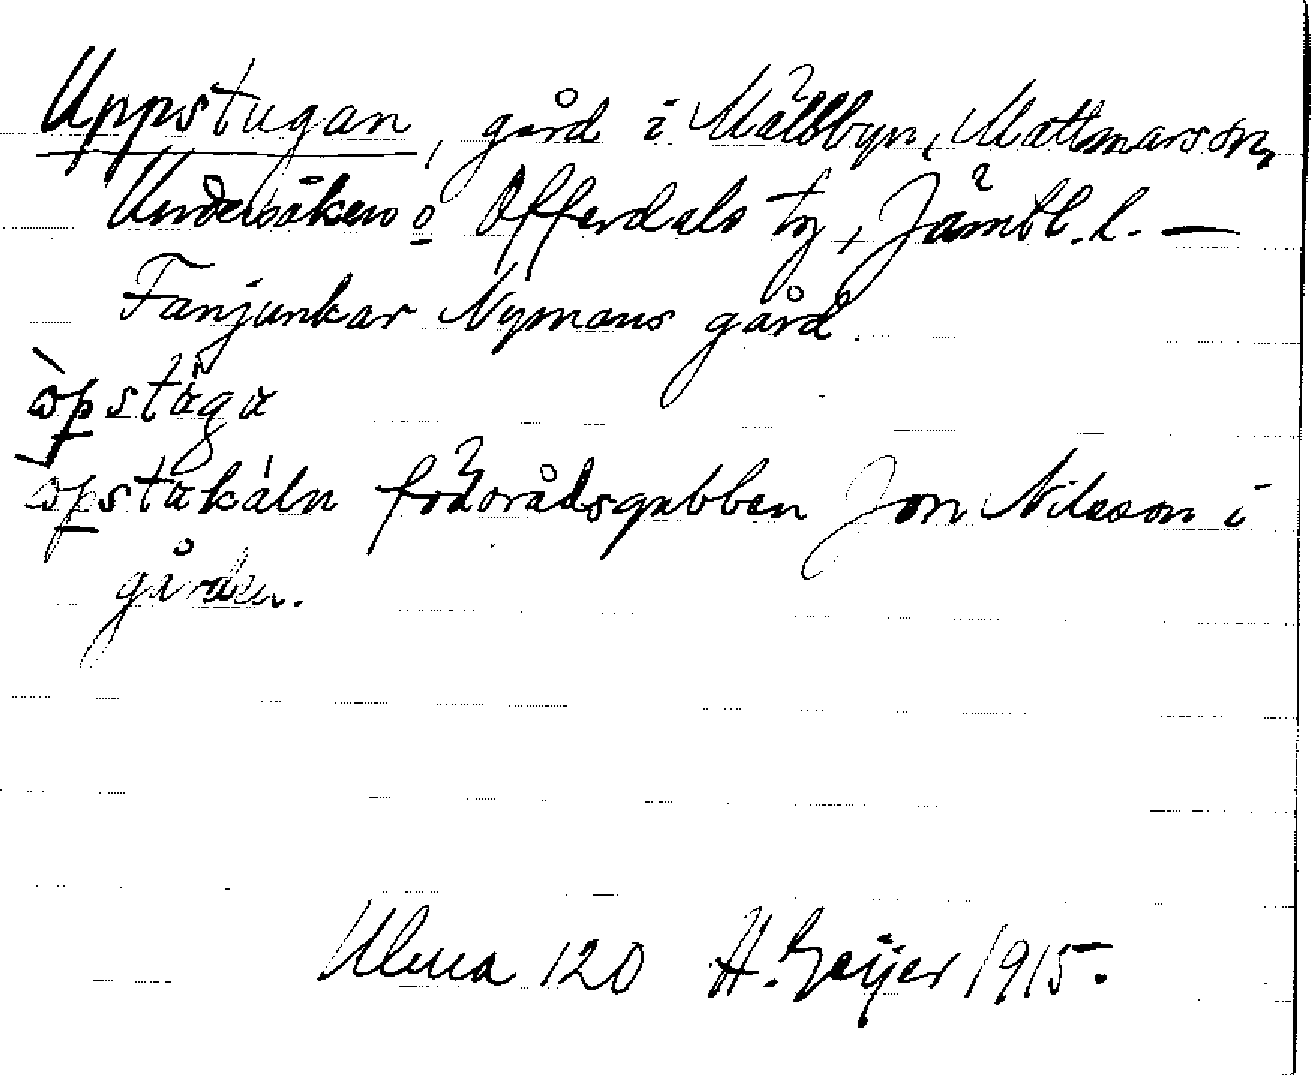 Uppstugan, gård i Mällbyn, Mattmars sn,
Undersåkers o Offerdals tg, Jämtl. l. —
Fanjunkar Nymans gård.
òpstäga
òpstakáln födorådsgubben Jon Nilsson i
gården.
Ulma 120 H. Geijer 1915.